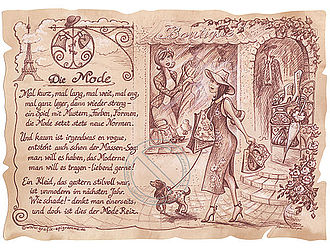 Die Mode
Mal kurz, mal lang, mal weit, mal eng,
mal ganz leger, dann wieder streng -
ein Spiel mit Mustern, Farben, Formen,
die Mode setzt stets neue Normen.
Und kaum ist irgendwas en vogue,
entsteht auch schon der Massen-Sog:
man will es haben, das Moderne,
man will es tragen - liebend gerne!
Ein Kleid, das gestern stilvoll war,
ist unmodern im nächsten Jahr.
Wie schade! - denkt man einerseits,
und doch ist dies der Mode Reiz.